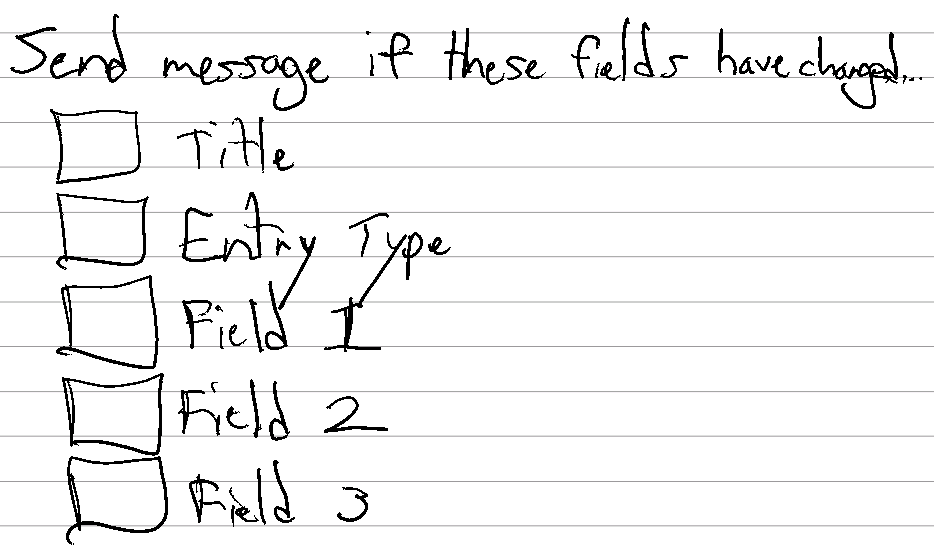 Send message if these fields have changed...
Title
Entry Type
Field 1
Field 2
Field 3